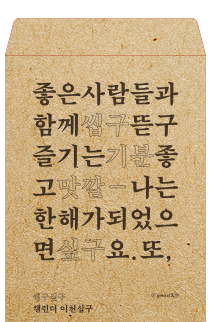 좋은사람들과
함께씹구뜯구
즐기는기분좋
고맛깔一나는
한해가되었으
면싶구요.또,
씸구십구
캘린더 이천십구